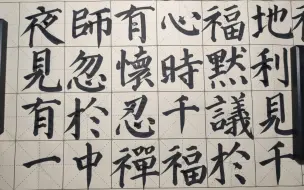 地利見千
福默議於
心時千福
有懷忍禪
師忽於中
夜見有一